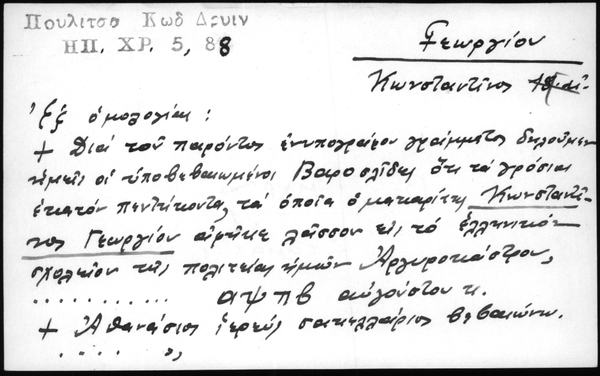 Πουλιτσα Κωδ Δρυιν
ΗΠ. ΧΡ. 5, 88
Γεωργίου
Κωνσταντῖνος
Ἐξ ὁμολογίας :
+ Διὰ τοῦ παρόντος ἐνυπογράφου γράμματος δηλοῦμεν
ἡμεῖς οἱ ὑποβεβαιωμένοι Βαροσλῖδες ὅτι τὰ γρόσια
ἑκατὸν πεντήκοντα, τὰ ὁποῖα ὁ μακαρίτης Κωνσταντῖ-
νος Γεωργίου ἀφῆκε λάσσον εἰς τὸ ἑλληνικὸν
σχολεῖον τῆς πολιτείας ἡμῶν Ἀργυροκάστρου,
.......... αψπβ αὐγούστου κ.
+ Ἀθανάσιος ἱερεὺς σακελλάριος βεβαιώνω.
..... »